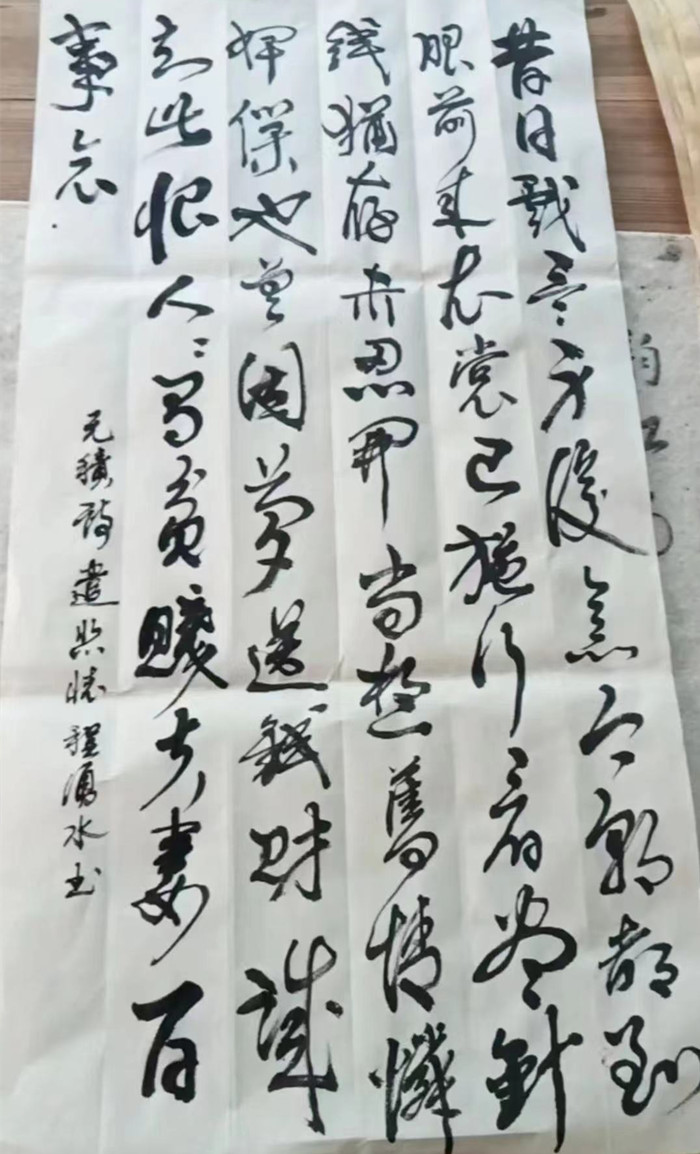 昔日戲言身後意今朝都到
眼前来衣裳已施行看尽針
綫猶存未忍開尚想舊情憐
婢僕也曾因夢送錢財誠
知此恨人々有貧賤夫妻百
事哀
元稹詩遣悲懷程湧水书